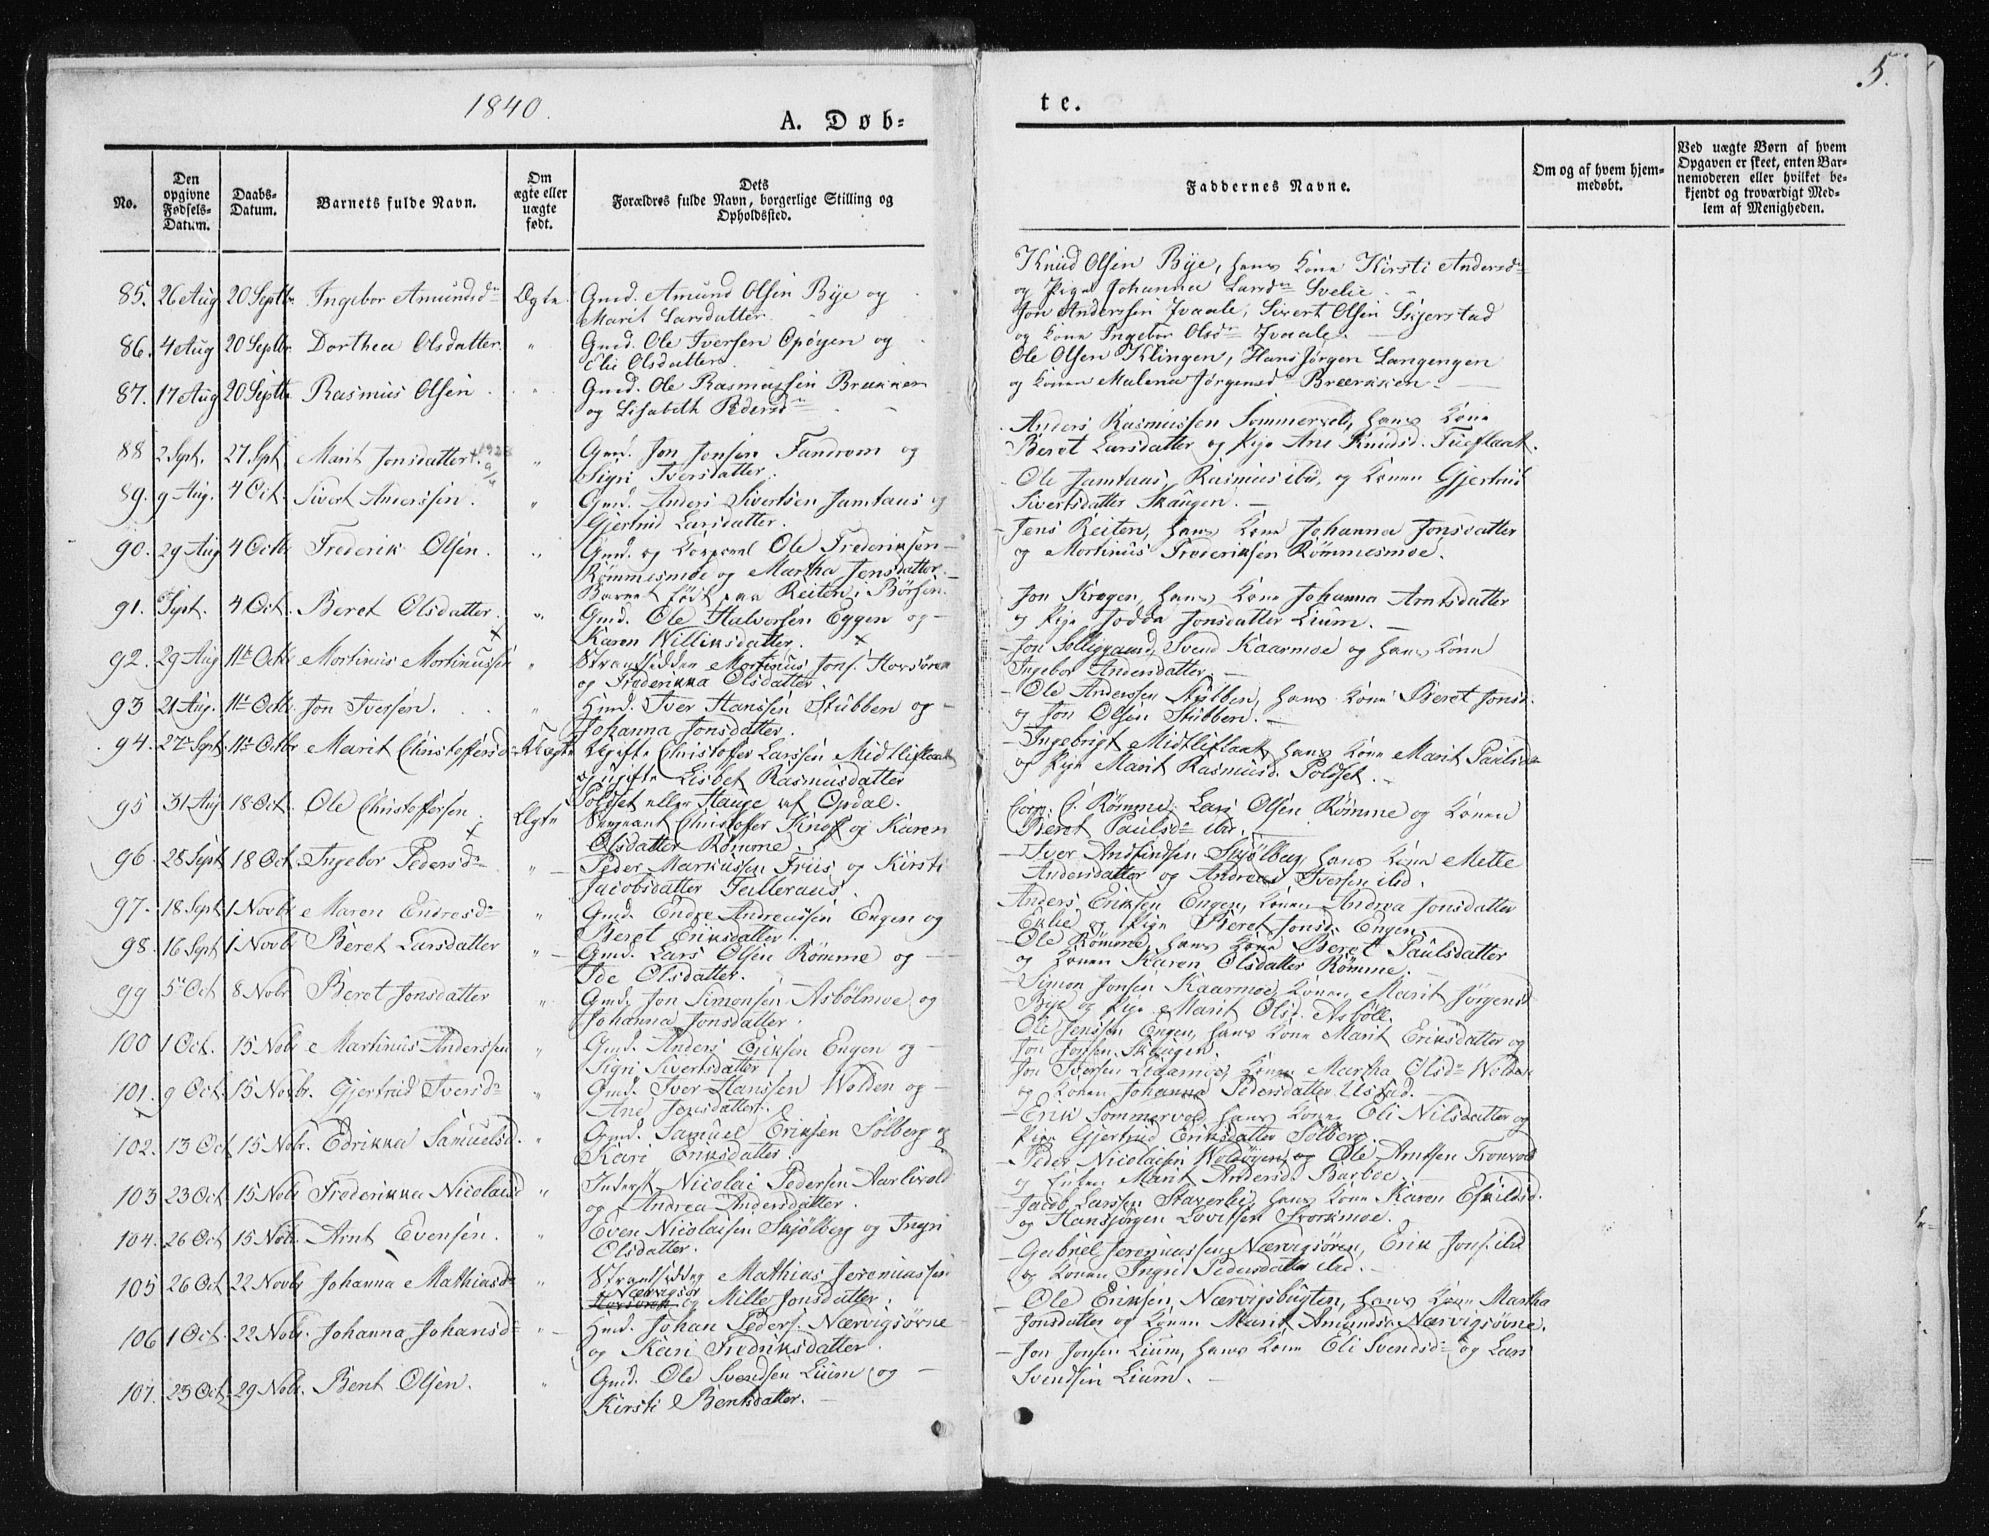 1840.
A. Døb-
No.
Den
opgivne
Fødsels-
Datum.
Daabs-
Datum.
Barnets fulde Navn.
Om
ægte eller
uægte
født.
Dets
Forældres fulde Navn, borgerlige Stilling og
Opholdssted.
85. 26 Aug 20 Septbr. Ingebor Amundsdr Ægte. Gmd. Amund Olsen Bye og
Marit Larsdatter.
86. 4 Aug 20 Septbr. Dorthea Olsdatter. " Gmd. Ole Iversen Opøyen og
Eli Olsdatter.
87. 17 Aug 20 Septbr Rasmus Olsen. " Gmd. Ole Rasmussen Brækken
og Lisabeth Pedersdr
88 2 Sept. 27 Spt. Marit Jonsdatter " Gmd. Jon Jonsen Fandrem og
Sigri Iversdatter.
89. 9 Aug. 4 Oct. Sivert Anderssen. " Gmd. Anders Sivertsen Jamtaas og
Gjertrud Larsdatter.
90. 29 Aug 4 Octbr Frederik Olsen. " Gmd. og Corporal Ole Frederiksen
Rømmesmoe og Martha Jensdatter.
Barnet født paa Reiten i Børsen.
91. Sept. 4 Oct. Beret Olsdatter. " Gmd. Ole Halvorsen Eggen og
Karen Williksdatter.
92. 29 Aug 11te Octbr Mortinus Mortinussen " Strandsidder Mortinus Jons. Horsøren
og Frederikka Olsdatter
93 21 Aug. 11te Octbr. Jon Iversen. " Hmd. Iver Hanssen Stubben og
Johanna Jonsdatter.
94. 27de Sept. 11te Octbr Marit Christoffersd. Uægte Ugifte Christofer Larssen Midtliflaat
og ugifte Lisbet Rasmusdatter
Poldset eller Hauge af Opdal.
95 31 Aug 18 Oct. Ole Christoffersen. Ægte Sergeant Christofer Knoff og Karen
Olsdatter Rømme.
96 28 Sept 18 Oct. Ingebor Pedersdr " Peder Markussen Friis og Kirsti
Jacobsdatter Falleraas.
97. 18 Sept 1 Novbr Maren Endresdr " Gmd. Endre Andreassen Engen og
Beret Eriksdatter.
98. 16 Sept 1 Novb. Beret Larsdatter " Gmd. Lars Olsen Rømme og
Ide Olsdatter.
99 5 Oct 8 Nobr Beret Jonsdatter " Gmd. Jon Simonsen Asbølmoe og
Johanna Jonsdatter.
100 1 Oct. 15 Nobr Martinus Anderssen " Gmd. Anders Eriksen Engen og
Sigri Sivertsdatter
101. 9 Oct. 15 Novbr. Gjertrud Iversdr " Gmd. Iver Hanssen Wolden og
Ane Jonsdatter.
102. 13 Oct 15 Nobr. Edrikka Samuelsd. " Gmd. Samuel Eriksen Solberg og
Kari Eriksdatter.
103 23 Oct 15 Nobr Frederikka Nicolaisd " Inderst Nicolai Pedersen Aarlivold
og Andrea Andersdatter.
104. 26 Oct 15 Nobr. Arnt Evensen. " Even Nicolaisen Skjølberg og Ingri
Olsdatter.
105 26 Oct 22 Novbr Johanna Mathiasdr " Strandsidder Mathias Jeremiassen
Nærvigsør
og Mille Jonsdatter.
106 1 Oct. 22 Nobr. Johanna Johansdr " Hmd. Johan Peders. Nærvigsøvne
og Kari Fredriksdatter.
107. 23 Oct. 29 Nobr. Bent Olsen. " Gmd. Ole Svendsen Lium og
Kirsti Bentsdatter.
te.
5.
Faddernes Navne.
Om og af hvem hjem-
medøbt.
Ved uægte Børn af hvem
Opgaven er skeet, enten Bar-
nemoderen eller hvilket be-
kjendt og troværdigt Med-
lem af Menigheden.
Knud Olsen Bye, hans Kone Kirsti Andersdr
og Pige Johanna Larsdr Svelie.
Jon Anderssen Ivaale, Sivert Olsen Skjerstad
og Kone Ingebor Olsdr Ivaale.
Ole Olsen Klingen, Hans Jørgen Langengen
og Konen Malena Jørgensdr Brækken.
Anders Rasmussen Sommervold, hans Kone
Beret Larsdatter og Pige Ane Knudsd. Tueflaat.
Ole Jamtaas, Rasmus ibd. og Konen Gjertrud
Sivertsdatter Skaugen.
Jens Reiten, hans Kone Johanna Jonsdatter
og Mortinus Frederiksen Rømmesmoe.
Jon Kragen, hans Kone Johanna Arntsdatter
og Pige Jodda Jonsdatter Lium.
Jon Solliggaard, Svend Kaarmoe og hans Kone
Ingebor Andersdatter.
Ole Anderssen Stubben, hans Kone Beret Jonsd.
og Jon Olsen Stubben.
Ingebrigt Midtliflaat, hans Kone Marit Paulsdr
og Pige Marit Rasmusd. Poldset.
Corp. C. Rømme, Lars Olsen Rømme og Konen
Beret Paulsdr ibd.
Iver Andfindsen Skjølberg, hans Kone Mette
Andersdatter og Andreas Iversen ibd.
Anders Eriksen Engen, Konen Andrea Jonsdatter
Eklie og Pige Beret Jonsd. Engen.
Ole Rømme, hans Kone Beret Paulsdatter
og Konen Karen Olsdatter Rømme.
Simon Jonsen Kaarmoe, Konen Marit Jørgensd
Bye og Pige Marit Olsd. Asbøll.
Ole Jenssen Engen, hans Kone Marit Eriksdatter og
Jon Jonsen Skaugen.
Jon Iversen Lidamoe, Konen Martha Olsdr Wolden
og Konen Johanna Pedersdatter Ustad.
Erik Sommervold, hans Kone Eli Nilsdatter og
Pige Gjertrud Eriksdatter Solberg.
Peder Nicolaisen Woldøien og Ole Arntsen Tronvold
og Enken Marit Andersd. Barboe.
Jacob Larssen Staverlie, hans Kone Karen Eskildsd.
og Hansjørgen Lovitsen Svorkmoe.
Gabriel Jeremiassen Nærvigsøren, Erik Jons. ibd
og Konen Ingri Pedersdatter ibd.
Ole Eriksen Nærvigsbugten, hans Kone Martha
Jonsdatter og Konen Marit Amundsd. Nærvigsøvne.
Jon Jonsen Lium, hans Kone Eli Svendsdr og Lars
Svendsen Lium.